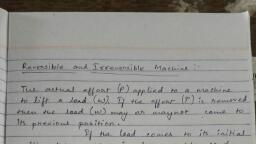 Reversible and Irreversible Machine :-
The actual effort (P) applied to a machine
to lift a load (W). If the effort (P) is removed
then the load (W) may or maynot come to
its previous position.
If the load comes to its initial